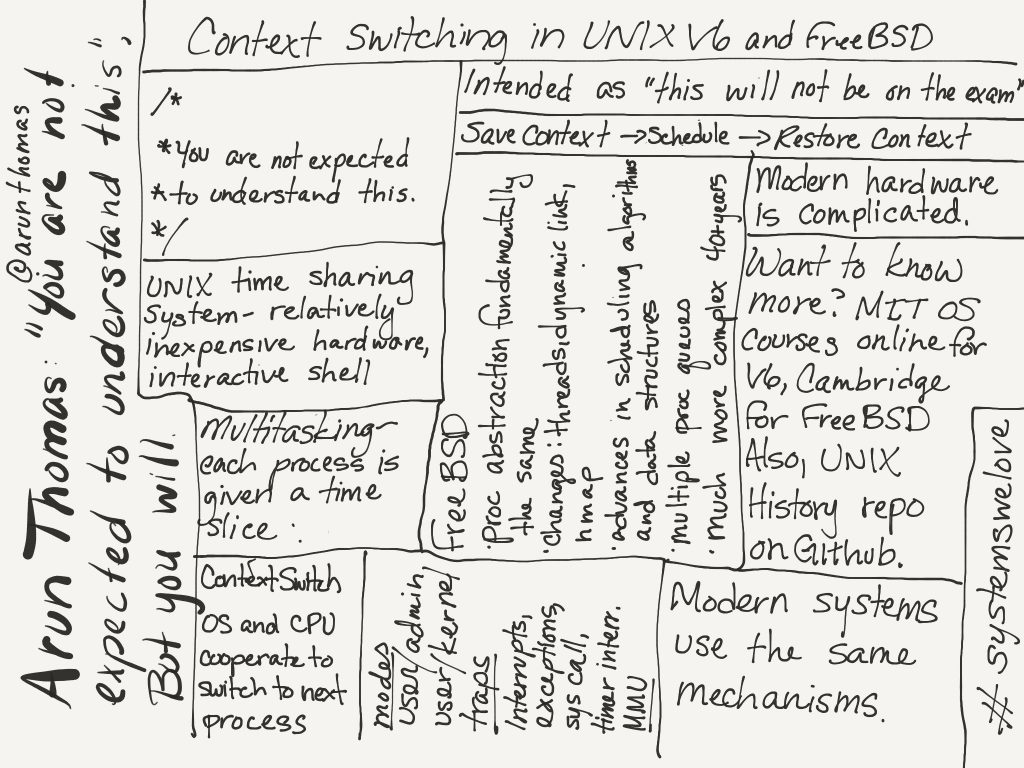 @arunthomas
Arun Thomas: "You are not
expected to understand this."
But you will.
Context Switching in UNIX V6 and FreeBSD
/*
*You are not expected
*to understand this.
*/
Intended as "this will not be on the exam"
Save Context → Schedule → Restore Context
UNIX time sharing
system- relatively
inexpensive hardware,
interactive shell
Multitasking-
each process is
given a time
slice.
Context Switch
OS and CPU
cooperate to
switch to next
process
modes
user/admin
user/kernel
traps
Interrupts,
exceptions,
sys call,
timer interr.
MMU
FreeBSD
·Proc abstraction fundamentally
the same
·changes: threads, dynamic link,
hmap
·advances in scheduling algorithms
and data structures
·multiple proc queues
·much more complex 40+years
Modern hardware
is complicated.
Want to know
more? MIT OS
courses online for
V6, Cambridge
for FreeBSD
Also, UNIX
History repo
on Github.
Modern systems
use the same
mechanisms.
# systemswelove